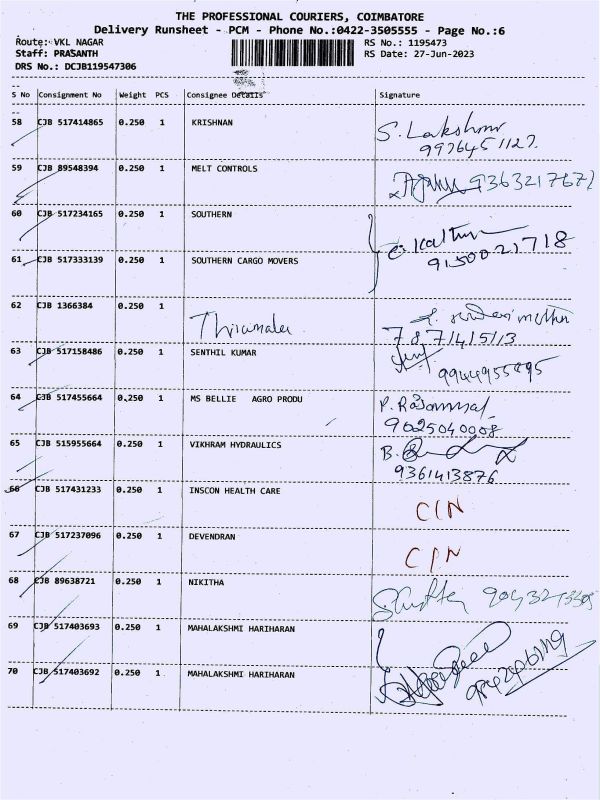 THE PROFESSIONAL COURIERS, COIMBATORE
Delivery Runsheet - PCM - Phone No.:0422-3505555 - Page No.:6
Route: VKL NAGAR RS No.: 1195473
Staff: PRASANTH RS Date: 27-Jun-2023
DRS No.: DCJB119547306
S No Consignment No Weight PCS Consignee Details Signature
58 CJB 517414865 0.250 1 KRISHNAN S. Lakshmi
9976451127.
59 CJB 89548394 0.250 1 MELT CONTROLS
60 CJB 517234165 0.250 1 SOUTHERN
9150021718
61 CJB 517333139 0.250 1 SOUTHERN CARGO MOVERS
62 CJB 1366384 0.250 1 Thirumalai
63 CJB 517158486 0.250 1 SENTHIL KUMAR
64 CJB 517455664 0.250 1 MS BELLIE AGRO PRODU P. Rajammal
9025040008
65 CJB 515955664 0.250 1 VIKHRAM HYDRAULICS B.
9361413876
66 CJB 517431233 0.250 1 INSCON HEALTH CARE CIN
67 CJB 517237096 0.250 1 DEVENDRAN CIN
68 CJB 89638721 0.250 1 NIKITHA
69 CJB 517403693 0.250 1 MAHALAKSHMI HARIHARAN
70 CJB 517403692 0.250 1 MAHALAKSHMI HARIHARAN